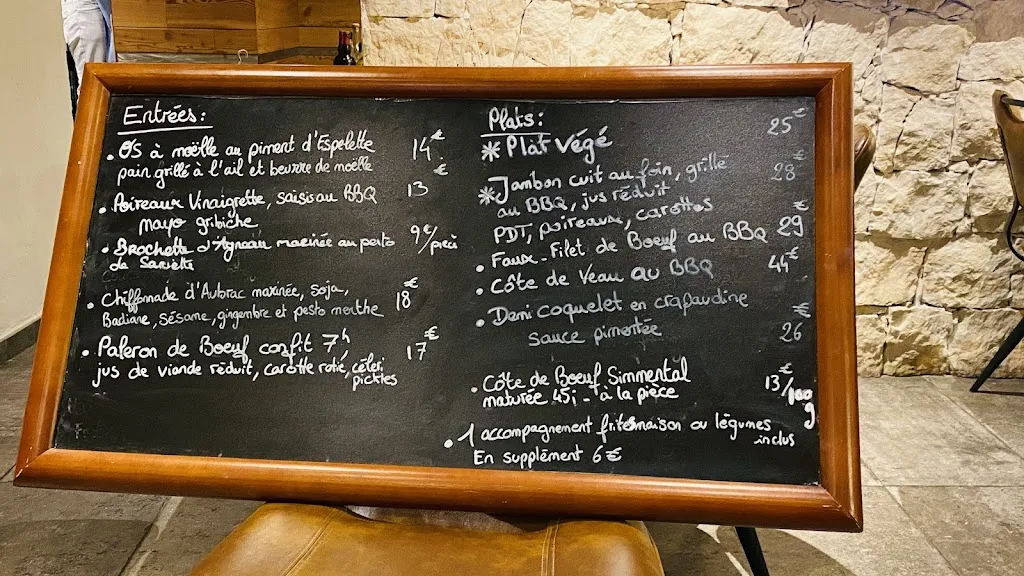 Entrées:
• OS à moëlle au piment d'Espelette 14€
pain grillé à l'ail et beurre de moëlle
• Poireaux Vinaigrette, saisis au BBQ 13€
mayo gribiche
• Brochette d'Agneau marinée au pesto 9€/pièce
de Sariette
• Chiffonnade d'Aubrac marinée, soja, 18€
Badiane, sésame, gingembre et pesto menthe
• Paleron de Boeuf confit 7h 17€
jus de viande réduit, carotte rotie, céleri,
pickles
Plats:
* Plat végé 25€
* Jambon cuit au foin, grillé 28€
au BBQ, jus réduit
PDT, poireaux, carottes
• Faux-Filet de Boeuf au BBQ 29€
• Côte de Veau au BBQ 44€
• Demi coquelet en crapaudine
sauce pimentée 26€
• Côte de Boeuf Simmental 13€/100g
maturée 45j - à la pièce
• 1 accompagnement frites maison ou légumes
inclus
En supplément 6€